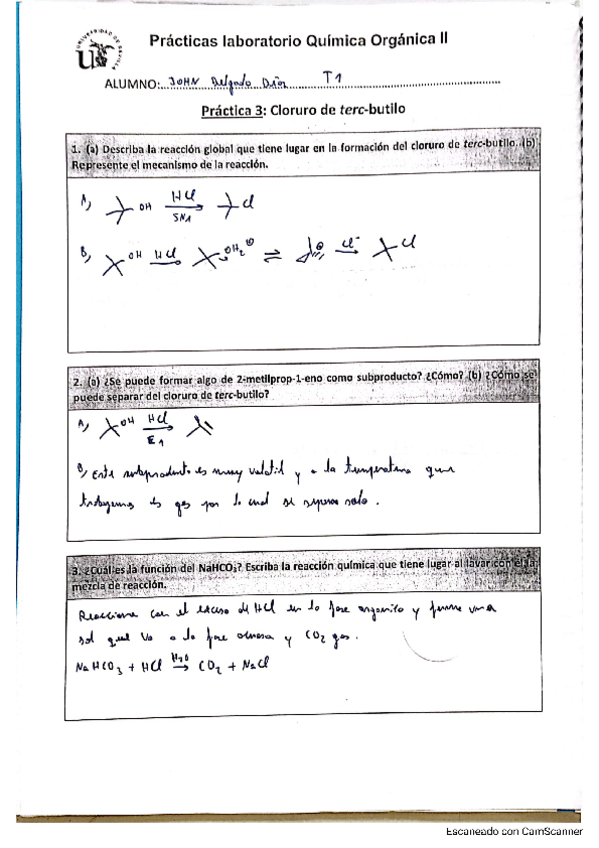 UNIVERSIDAD DE SEVILLA
Prácticas laboratorio Química Orgánica II
ALUMNO: JOHN Delgado T1
Práctica 3: Cloruro de terc-butilo
1. (a) Describa la reacción global que tiene lugar en la formación del cloruro de terc-butilo. (b)
Represente el mecanismo de la reacción.
A) OH HCl SN1 → Cl
B) OH HCl → OH2⊕ ⇌ ⊕ Cl⁻ → Cl
2. (a) ¿Se puede formar algo de 2-metilprop-1-eno como subproducto? ¿Cómo? (b) ¿Cómo se
puede separar del cloruro de terc-butilo?
A) OH HCl E1 →
B) Este subproducto es muy volatil y a la temperatura que
trabajamos es gas por lo cual se separa solo.
3. ¿Cuál es la función del NaHCO3? Escriba la reacción química que tiene lugar al lavar con él la
mezcla de reacción.
Reacciona con el exceso de HCl en la fase organica y forma una
sal que va a la fase acuosa y CO2 gas.
NaHCO3 + HCl H2O → CO2 + NaCl
Escaneado con CamScanner